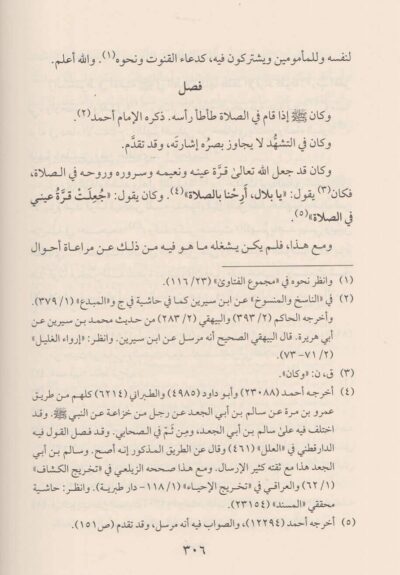 لنفسه وللمأمومين ويشتركون فيه، كدعاء القنوت ونحوه(١). والله أعلم.
فصل
وكان ﷺ إذا قام في الصلاة طأطأ رأسه. ذكره الإمام أحمد(٢).
وكان في التشهُّد لا يجاوز بصرُه إشارتَه، وقد تقدَّم.
وكان قد جعل الله تعالىٰ قرَّة عينه ونعيمه وسروره وروحه في الصلاة،
فكان(٣) يقول: «يا بلال، أَرِحْنا بالصلاة»(٤). وكان يقول: «جُعِلَتْ قرَّةُ عيني
في الصلاة»(٥).
ومع هذا، فلم يكن يشغله ما هو فيه من ذلك عن مراعاة أحوال
(١) وانظر نحوه في «مجموع الفتاوىٰ» (٢٣/ ١١٦).
(٢) في «الناسخ والمنسوخ» عن ابن سيرين كما في حاشية في ج و«المبدع» (١/ ٣٧٩).
وأخرجه الحاكم (٢/ ٣٩٣) والبيهقي (٢/ ٢٨٣) من حديث محمد بن سيرين عن
أبي هريرة. قال البيهقي الصحيح أنه مرسل عن ابن سيرين. وانظر: «إرواء الغليل»
(٢/ ٧١-٧٣).
(٣) ق، ن: «وكان».
(٤) أخرجه أحمد (٢٣٠٨٨) وأبو داود (٤٩٨٥) والطبراني (٦٢١٤) كلهم من طريق
عمرو بن مرة عن سالم بن أبي الجعد عن رجل من خزاعة عن النبي ﷺ. وقد
اختلف فيه علىٰ سالم بن أبي الجعد، ومِن ثَمَّ في الصحابي. وقد فصل القول فيه
الدارقطني في «العلل» (٤٦١) وقال عن الطريق المذكور إنه أصح. وسالم بن أبي
الجعد هذا مع ثقته كثير الإرسال. ومع هذا صححه الزيلعي في «تخريج الكشاف»
(١/ ٦٢) والعراقي في «تخريج الإحياء» (١/ ١١٨- دار طبرية). وانظر: حاشية
محققي «المسند» (٢٣١٥٤).
(٥) أخرجه أحمد (١٢٢٩٤)، والصواب فيه أنه مرسل، وقد تقدم (ص١٥١).
٣٠٦